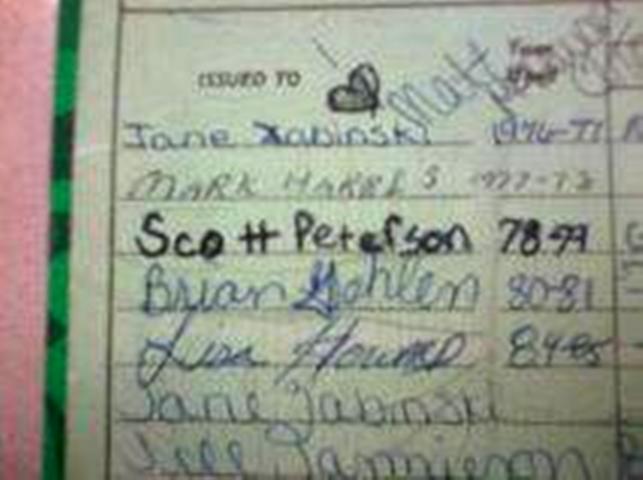 ISSUED TO
Matt
Year
Jane Zabinski 1976-77
MARK HARRIS 1977-78
Scott Peterson 78-79
Brian Gohlen 80-81
Lisa 84-85
Jane Zabinski
Jill Jamnieson